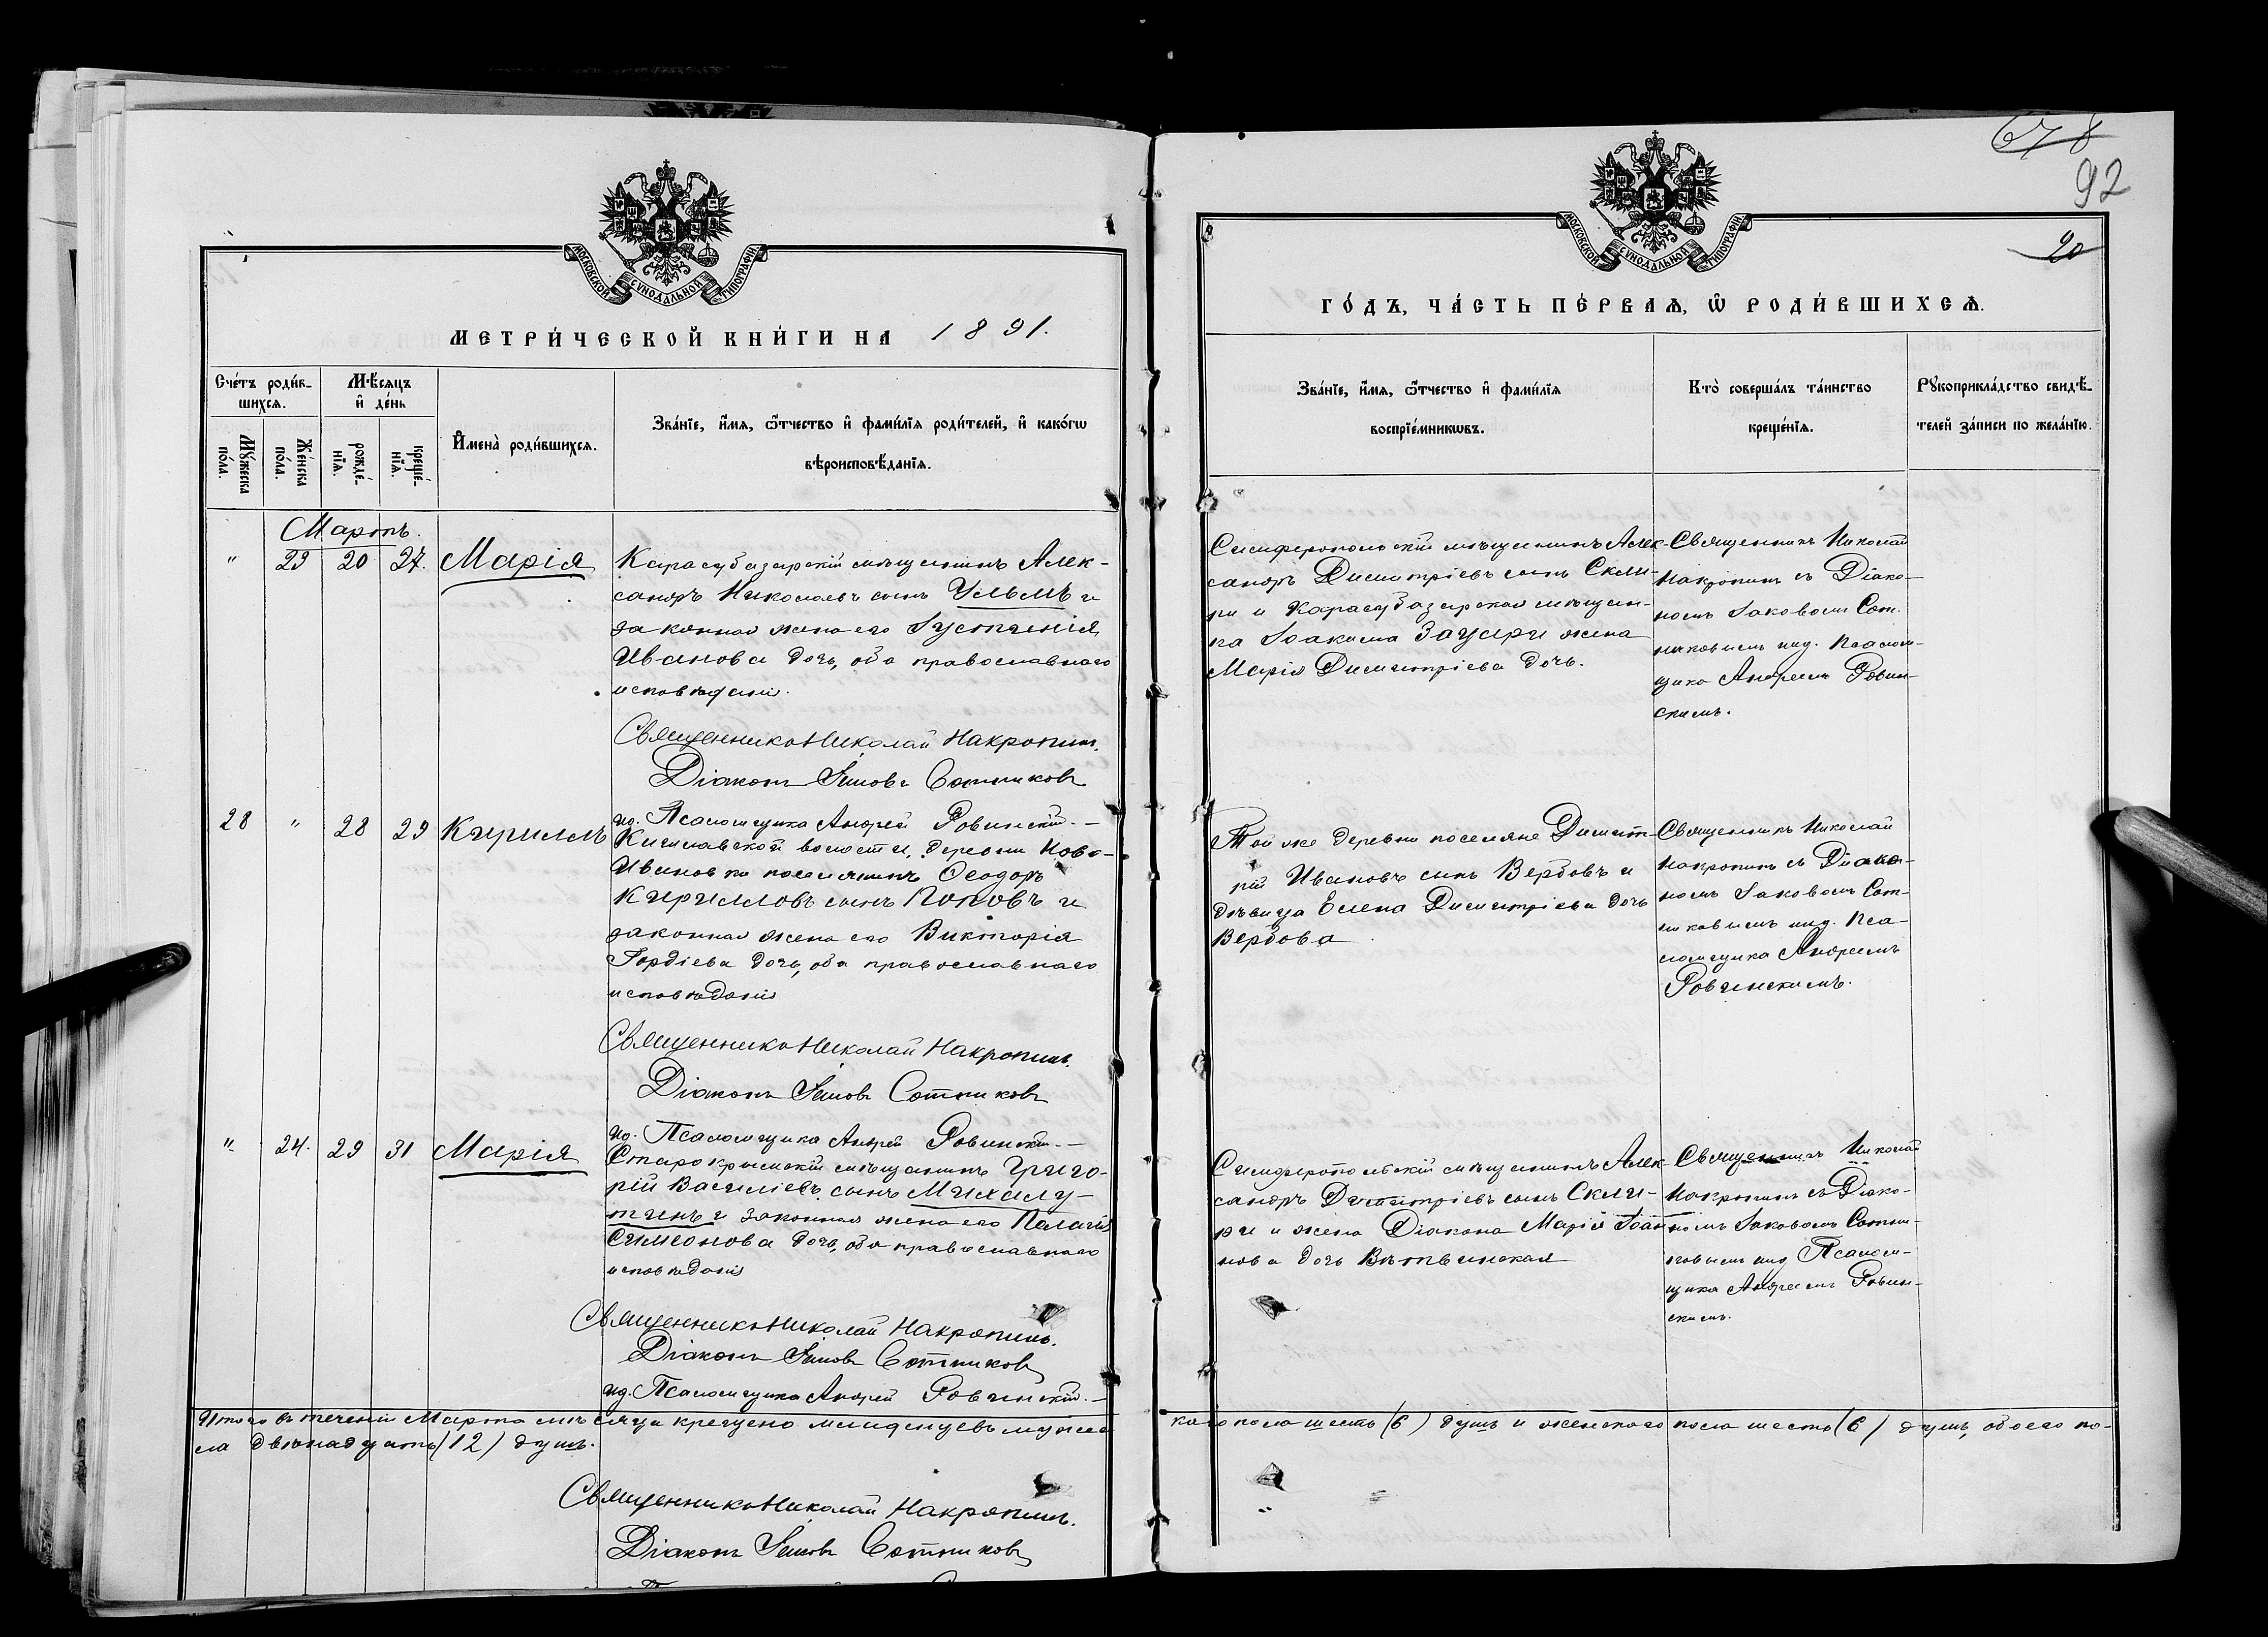 МОСКОВСКОЙ СѴНОДАЛЬНОЙ ТИПОГРАФІИ
МЕТРИ́ЧЕСКОЙ КНИ́ГИ НА 1891.
Сче́тъ роди́в-
шихсѧ.
Мѣ́сѧцъ
и҆ де́нь
Мꙋ́жеска
по́ла.
Же́нска
по́ла.
рожде́-
нїѧ.
креще́-
нїѧ.
И҆мена̀ роди́вшихсѧ.
Зва́нїе, и҆́мѧ, ѻ҆́тчество и҆ фами́лїѧ роди́телей, и҆ како́гѡ
вѣроисповѣ́данїѧ.
Мартъ.
" 23 20 27. Марія
Карасубазарскій мѣщанинъ Алек-
сандръ Николаевъ сынъ Ульмъ и
законная жена его Іустинія
Иванова дочь, оба православнаго
исповѣданія.
Священникъ Николай Накропинъ.
Діаконъ Іаковъ Сотниковъ
ид. Псаломщика Андрей Ровинскій.-
28 " 28 29 Кириллъ
волости, деревни Ново-
Ивановки поселянинъ Ѳеодоръ
Кирилловъ сынъ Поповъ и
законная жена его Викторія
Гордіева дочь, оба православнаго
исповѣданія
Священникъ Николай Накропинъ.
Діаконъ Іаковъ Сотниковъ
ид. Псаломщика Андрей Ровинскій.-
" 24. 29 31 Марія
Старокрымскій мѣщанинъ Григо-
рій Василіевъ сынъ Михалу-
тинъ и законная жена его Пелагія
Симеонова дочь, оба православнаго
исповѣданія
Священникъ Николай Накропинъ.
Діаконъ Іаковъ Сотниковъ
ид. Псаломщика Андрей Ровинскій.-
Итого въ теченіи Марта мѣсяца крещено младенцевъ мужес
ла двѣнадцать (12) душъ.
Священникъ Николай Накропинъ.
Діаконъ Іаковъ Сотниковъ
678
92
20
МОСКОВСКОЙ СѴНОДАЛЬНОЙ ТИПОГРАФІИ
ГО́ДЪ, ЧА́СТЬ ПЕ́РВАѦ, Ѡ҆ РОДИ́ВШИХСѦ.
Зва́нїе, и҆́мѧ, ѻ҆́тчество и҆ фами́лїѧ
воспрїе́мникѡвъ.
Кто̀ соверша́лъ та́инство
креще́нїѧ.
Рꙋкоприкла́дство свидѣ́-
телей за́писи по жела́нїю.
Симферопольскій мѣщанинъ Алек-
сандръ Димитріевъ сынъ Скли-
ри и Карасубазарская мѣщан-
ка Іоакима Зацари жена
Марія Димитріева дочь.
Священникъ Николай
Накропинъ съ Діако-
номъ Іаковомъ Сот-
никовымъ ид. Псалом-
щика Андреемъ Ровин-
скимъ.
Той же деревни поселяне Димит-
рій Ивановъ сынъ Вербовъ и
дѣвица Елена Димитріева дочь
Вербова
Священникъ Николай
Накропинъ съ Діако-
номъ Іаковомъ Сот-
никовымъ ид. Пса-
ломщика Андреемъ
Ровинскимъ.
Симферопольскій мѣщанинъ Алек-
сандръ Димитріевъ сынъ Скли-
ри и жена Діакона Марія Іоан
нова дочь Вѣтвинская
Священникъ Николай
Накропинъ съ Діако-
номъ Іаковомъ Сотни-
ковымъ ид Псалом-
щика Андреемъ Ровин-
скимъ.
каго пола шесть (6) душъ и женскаго пола шесть (6) душъ, обоего по-